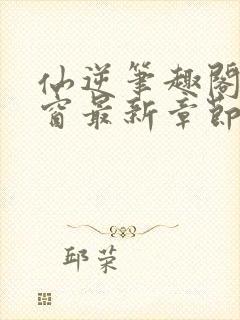 仙逆笔趣阁
窗最新章节
邱荣